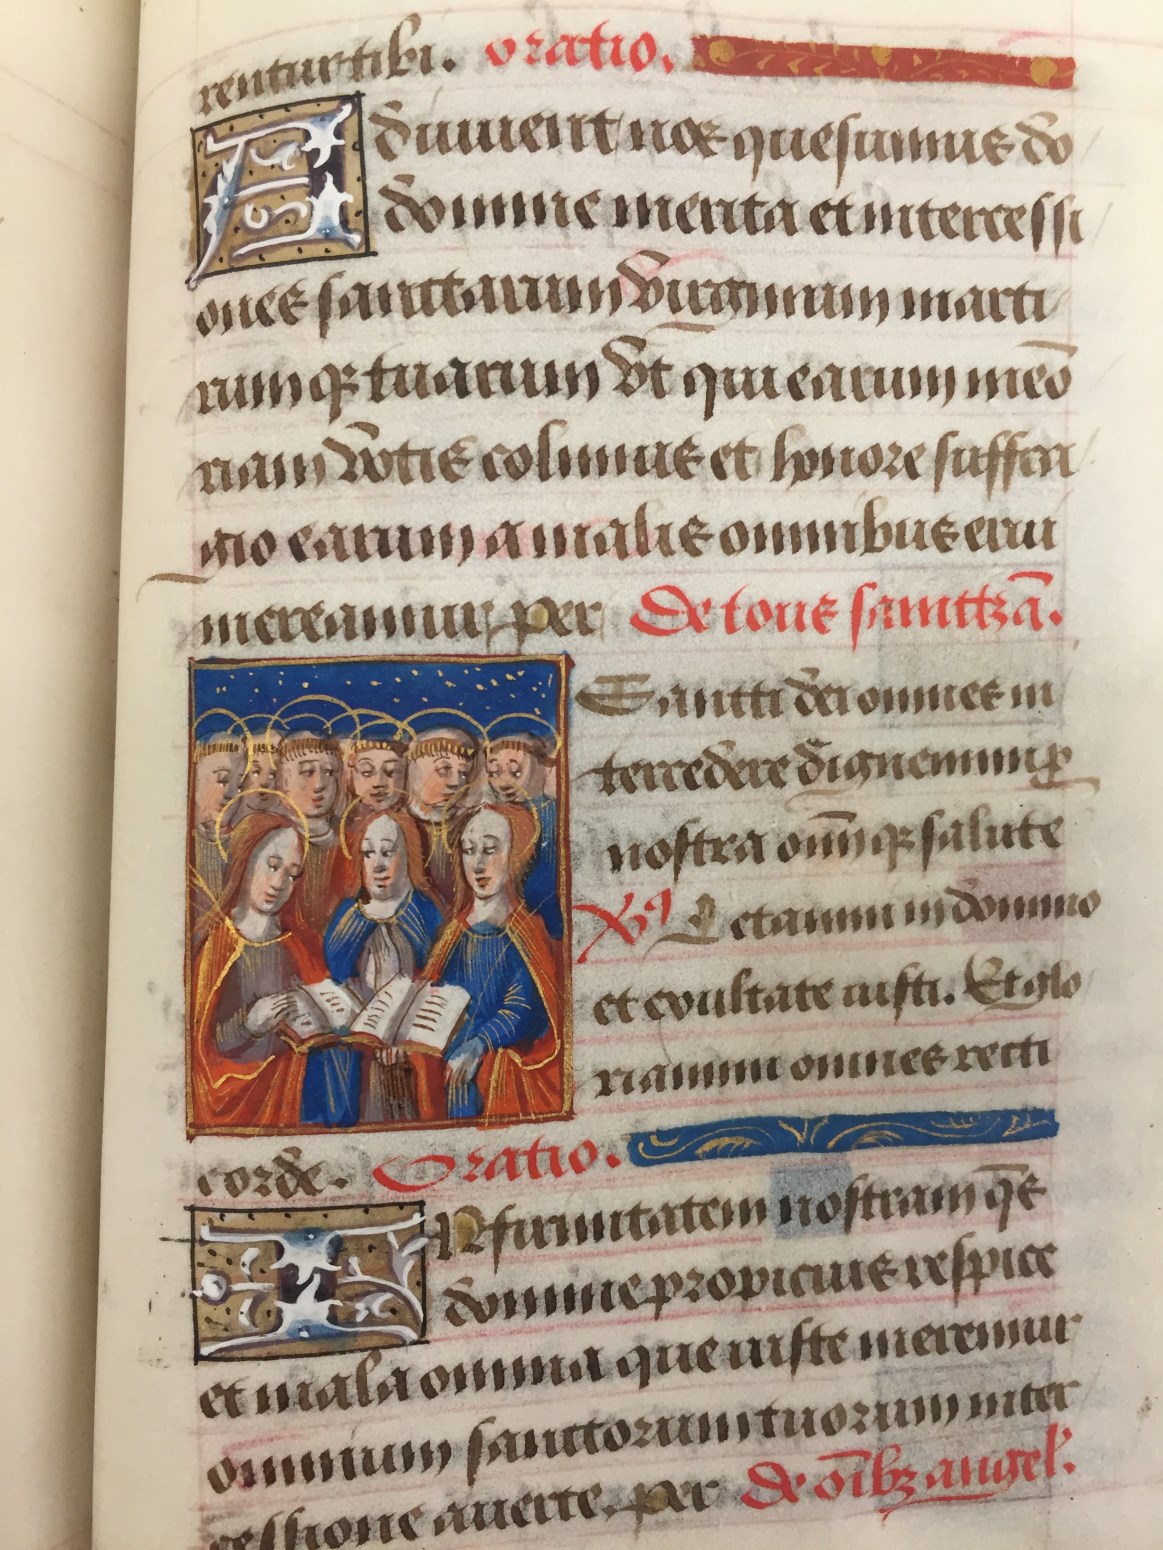 rentur tibi. oratio.
Adiuuent nos quesumus do
domine merita et intercessi
ones sanctarum virginum marti
rumq̄ tuarum vt qui earum meō
riam dōtis colimus et honore suffra
gio earum a malis omnibus erui
mereamur. per De tous sanctzā.
Sancti dei omnes in
tercedere dignemini p̄
nostra oīmq̄ salute
Letamini in domino
et exultate iusti. Et glo
riamini omnes recti
corde. Oratio.
INfirmitatem nostram q̄s
domine propicius respice
et mala omnia que iuste meremur
omnium sanctorum tuorum inter
cessione auerte. per De oībz angel'.